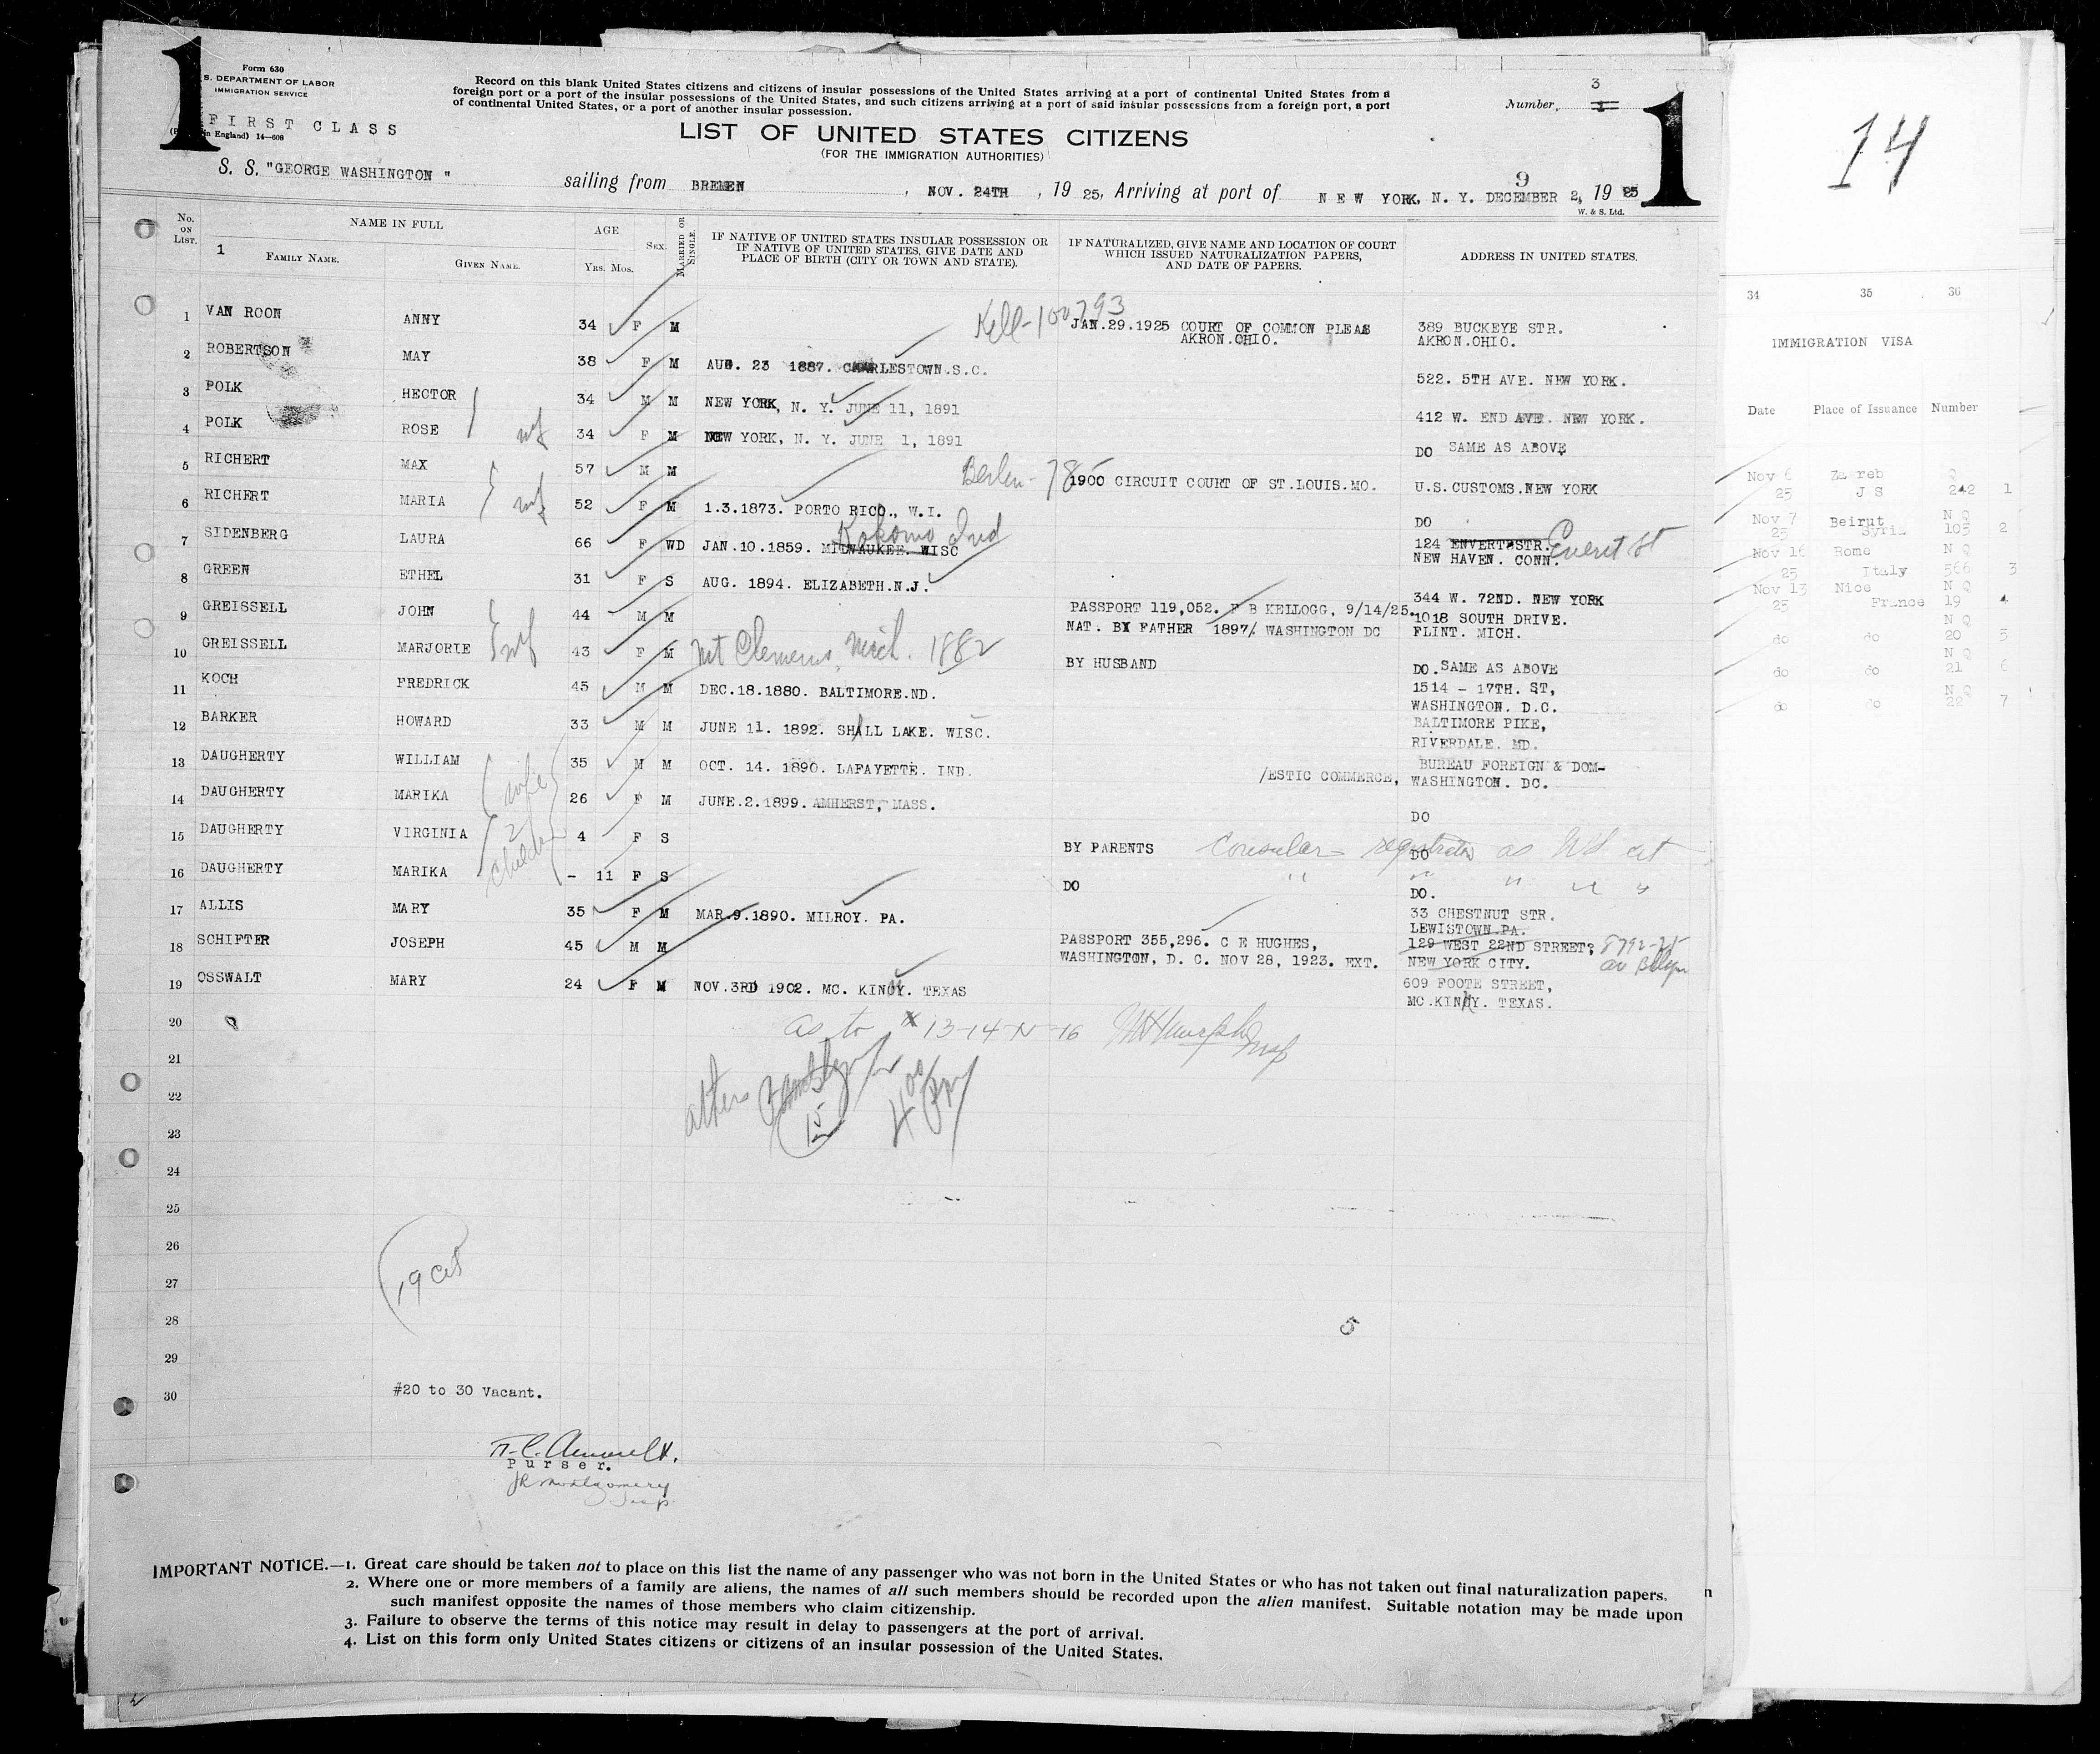 1
Form 630
S. DEPARTMENT OF LABOR
IMMIGRATION SERVICE
FIRST CLASS
in England) 14—608
Record on this blank United States citizens and citizens of insular possessions of the United States arriving at a port of continental United States from a
foreign port or a port of the insular possessions of the United States, and such citizens arriving at a port of said insular possessions from a foreign port, a port
of continental United States, or a port of another insular possession.
LIST OF UNITED STATES CITIZENS
(FOR THE IMMIGRATION AUTHORITIES)
3
Number, 1
1
S. S. "GEORGE WASHINGTON " sailing from BREMEN, NOV. 24TH, 19 25, Arriving at port of NEW YORK, N. Y. DECEMBER 2, 9 19 25
W. & S. Ltd.
No. ON LIST. NAME IN FULL AGE SEX. MARRIED OR SINGLE. IF NATIVE OF UNITED STATES INSULAR POSSESSION OR IF NATIVE OF UNITED STATES, GIVE DATE AND PLACE OF BIRTH (CITY OR TOWN AND STATE). IF NATURALIZED, GIVE NAME AND LOCATION OF COURT WHICH ISSUED NATURALIZATION PAPERS, AND DATE OF PAPERS. ADDRESS IN UNITED STATES.
1 FAMILY NAME. GIVEN NAME. YRS. MOS.
Kell-100793
1 VAN ROON ANNY 34 F M JAN.29.1925 COURT OF COMMON PLEAS AKRON.OHIO. 389 BUCKEYE STR. AKRON.OHIO.
2 ROBERTSON MAY 38 F M AUG. 23 1887. CHARLESTOWN.S.C. 522. 5TH AVE. NEW YORK.
3 POLK HECTOR 34 M M NEW YORK, N. Y. JUNE 11, 1891 412 W. END AVE. NEW YORK.
4 POLK ROSE wf 34 F M NEW YORK, N. Y. JUNE 1, 1891 DO SAME AS ABOVE
5 RICHERT MAX 57 M M Berlin-785 1900 CIRCUIT COURT OF ST.LOUIS.MO. U.S.CUSTOMS.NEW YORK
6 RICHERT MARIA wf 52 F M 1.3.1873. PORTO RICO., W.I. DO
7 SIDENBERG LAURA 66 F WD JAN.10.1859. MILWAUKEE. WISC Kokomo Ind 124 ENVERT STR. Everit St NEW HAVEN. CONN.
8 GREEN ETHEL 31 F S AUG. 1894. ELIZABETH.N.J. 344 W. 72ND. NEW YORK
9 GREISSELL JOHN 44 M M PASSPORT 119,052. F B KELLOGG, 9/14/25. NAT. BY FATHER 1897/ WASHINGTON DC 1018 SOUTH DRIVE. FLINT. MICH.
10 GREISSELL MARJORIE wf 43 F M Mt Clemens, Mich. 1882 BY HUSBAND DO. SAME AS ABOVE
11 KOCH FREDRICK 45 M M DEC.18.1880. BALTIMORE.ND. 1514 - 17TH. ST, WASHINGTON. D.C.
12 BARKER HOWARD 33 M M JUNE 11. 1892. SHALL LAKE. WISC. BALTIMORE PIKE, RIVERDALE. MD.
13 DAUGHERTY WILLIAM 35 M M OCT. 14. 1890. LAFAYETTE. IND. /ESTIC COMMERCE, BUREAU FOREIGN & DOM- WASHINGTON. DC.
14 DAUGHERTY MARIKA wife 26 F M JUNE.2.1899. AMHERST, MASS. DO
15 DAUGHERTY VIRGINIA 2 children 4 F S BY PARENTS Consular registration as US cit DO
16 DAUGHERTY MARIKA - 11 F S DO " DO. " " "
17 ALLIS MARY 35 F M MAR.9.1890. MILROY. PA. 33 CHESTNUT STR. LEWISTOWN.PA.
18 SCHIFTER JOSEPH 45 M M PASSPORT 355,296. C E HUGHES, WASHINGTON, D. C. NOV 28, 1923. EXT. 129 WEST 22ND STREET, NEW YORK CITY. 8792-25 av Bklyn
19 OSSWALT MARY 24 F M NOV.3RD 1902. MC. KINNY. TEXAS 609 FOOTE STREET, MC.KINNY. TEXAS.
20 as to # 13-14 15 16
21
22 others 15
23
24
25
26
27 19 cit
28
29
30 #20 to 30 Vacant.
Purser.
JR Montgomery
Insp.
IMPORTANT NOTICE.—1. Great care should be taken not to place on this list the name of any passenger who was not born in the United States or who has not taken out final naturalization papers.
2. Where one or more members of a family are aliens, the names of all such members should be recorded upon the alien manifest. Suitable notation may be made upon
such manifest opposite the names of those members who claim citizenship.
3. Failure to observe the terms of this notice may result in delay to passengers at the port of arrival.
4. List on this form only United States citizens or citizens of an insular possession of the United States.
14
34 35 36
IMMIGRATION VISA
Date Place of Issuance Number
Nov 6 Zagreb Q
25 J S 242 1
Nov 7 Beirut N Q
25 Syria 105 2
Nov 16 Rome N Q
25 Italy 566 3
Nov 13 Nice N Q
25 France 19 4
N Q
do do 20 5
N Q
do do 21 6
N Q
do do 22 7